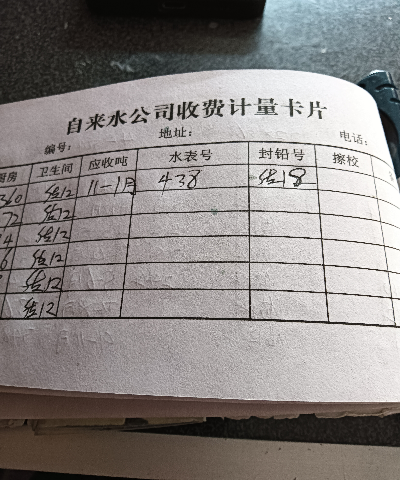 自来水公司收费计量卡片
编号： 地址： 电话：
厨房 卫生间 应收吨 水表号 封铅号 擦校
360 12 11-1月 438 18
72 12
4 12
6 12
12
12